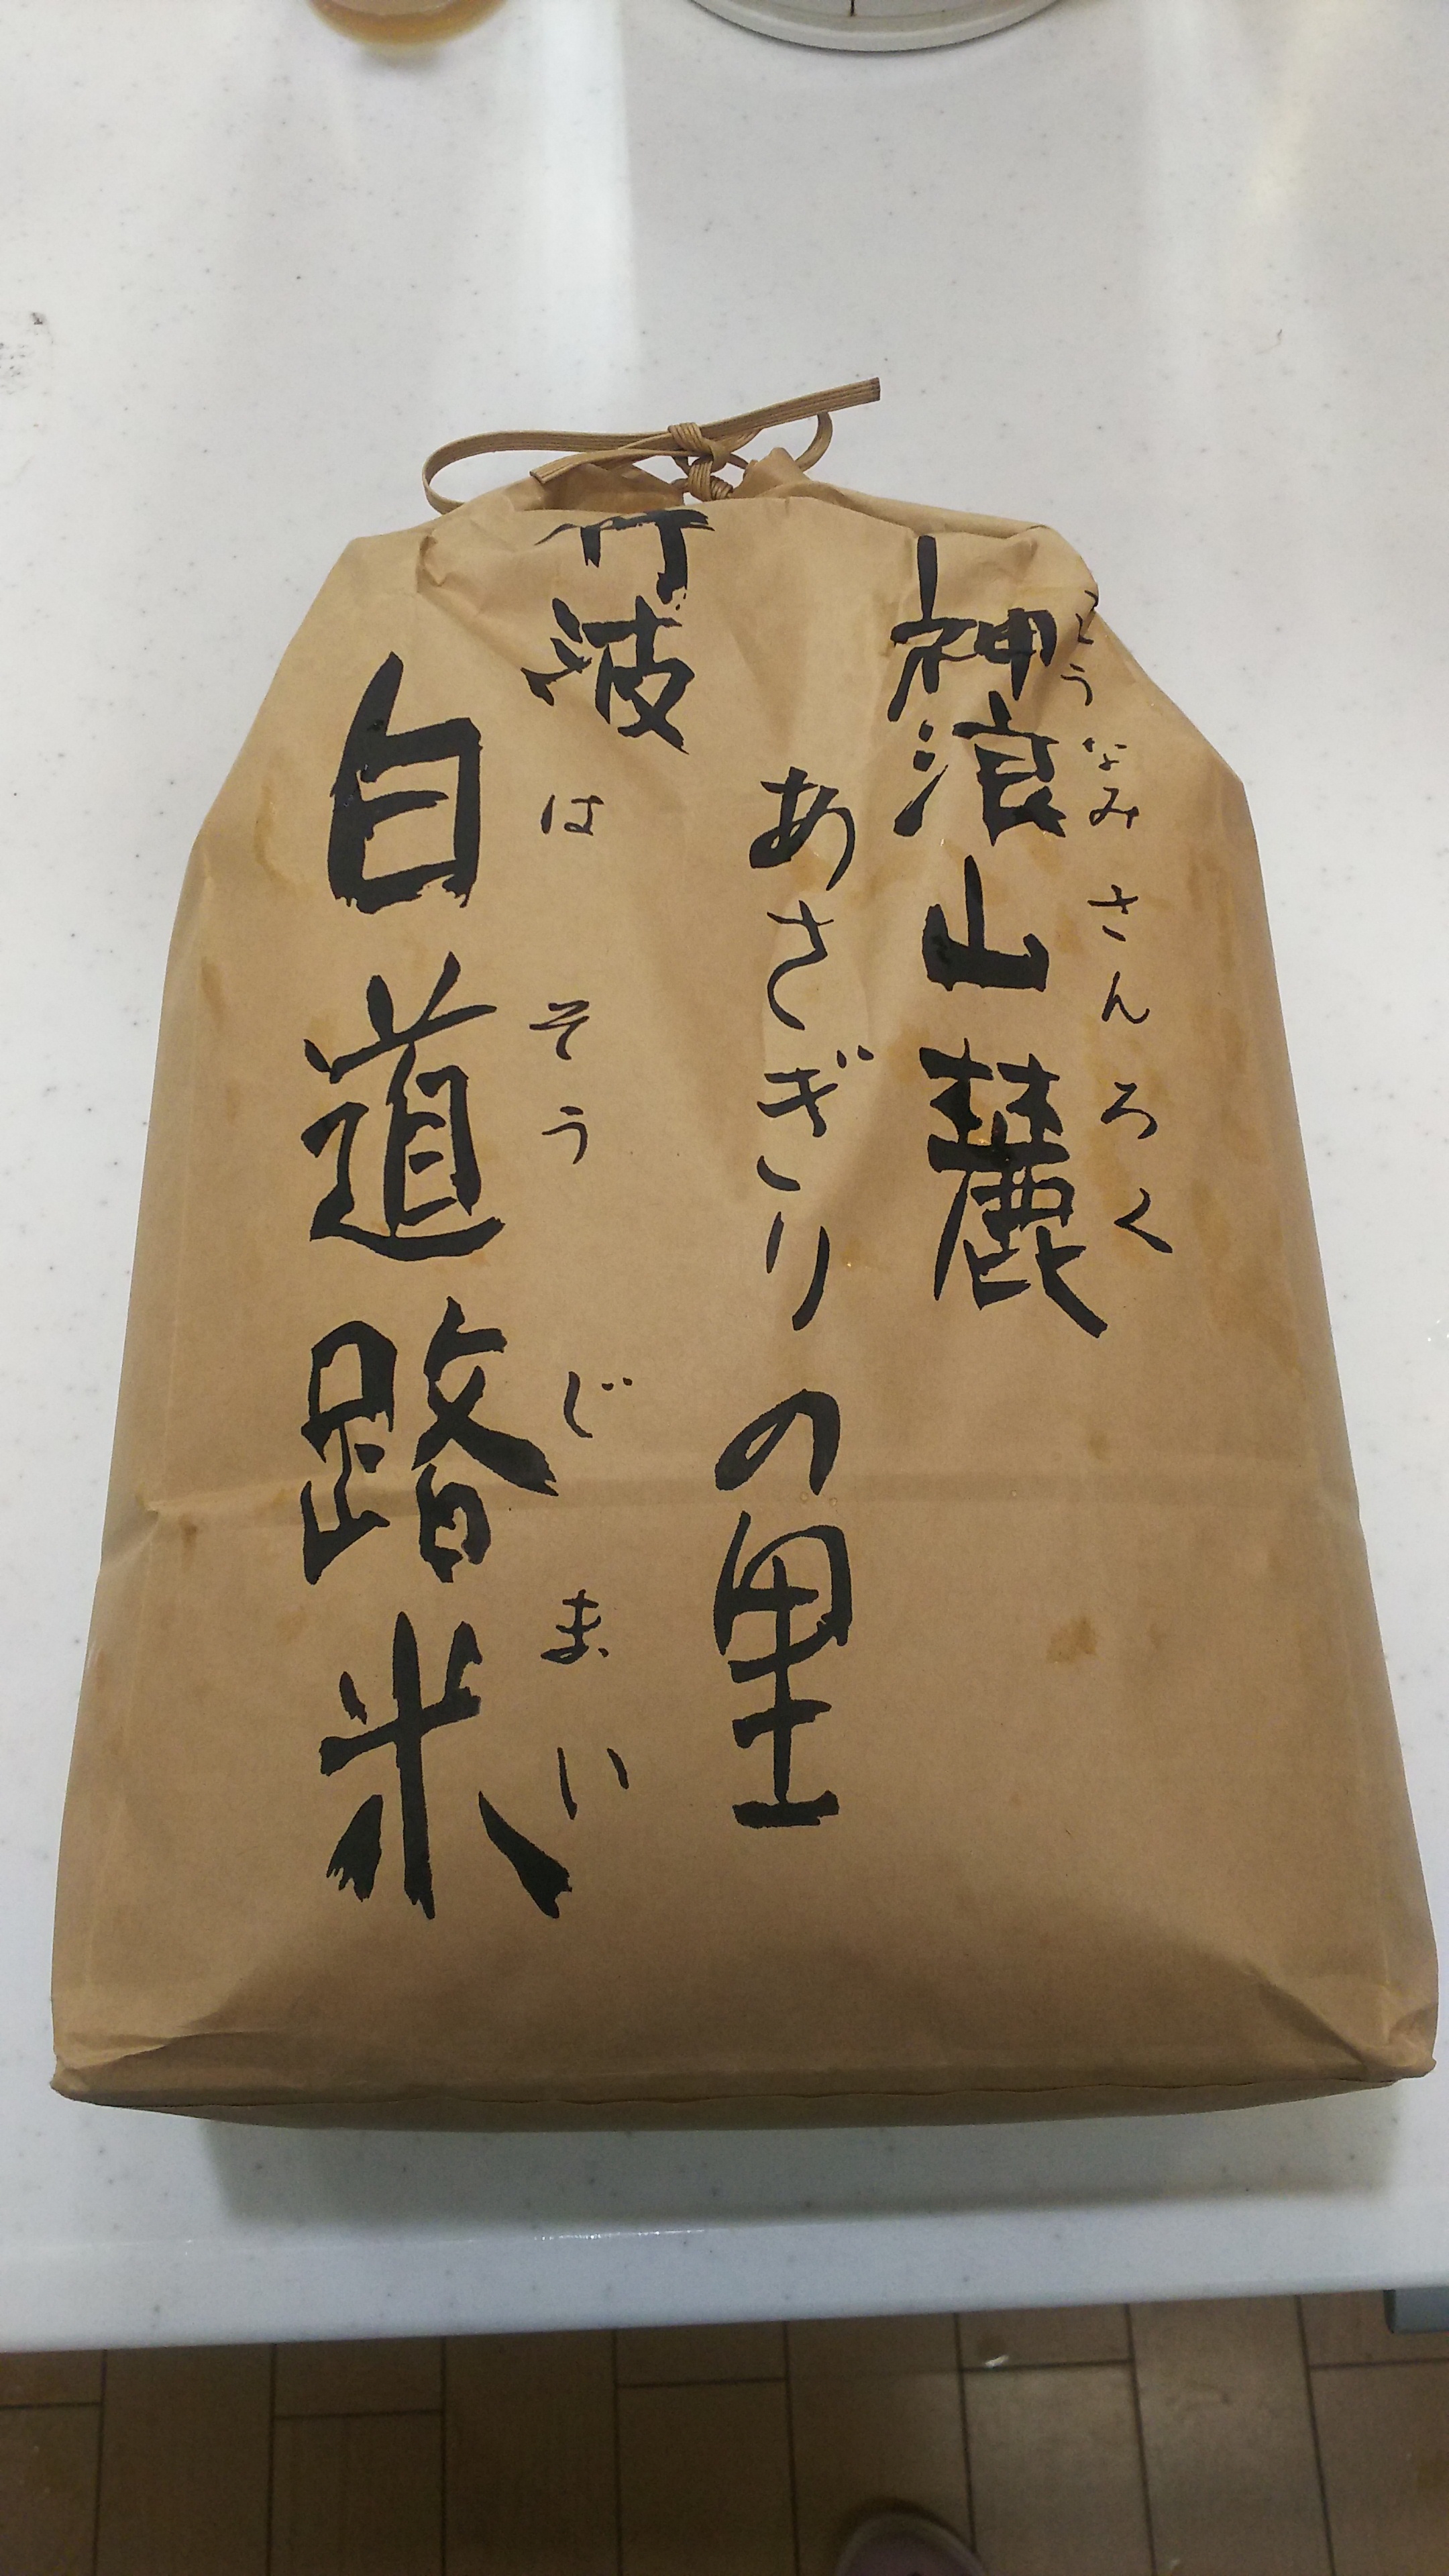 神浪山麓
こうなみさんろく
あさぎりの里
丹波
白道路米
はそうじまい